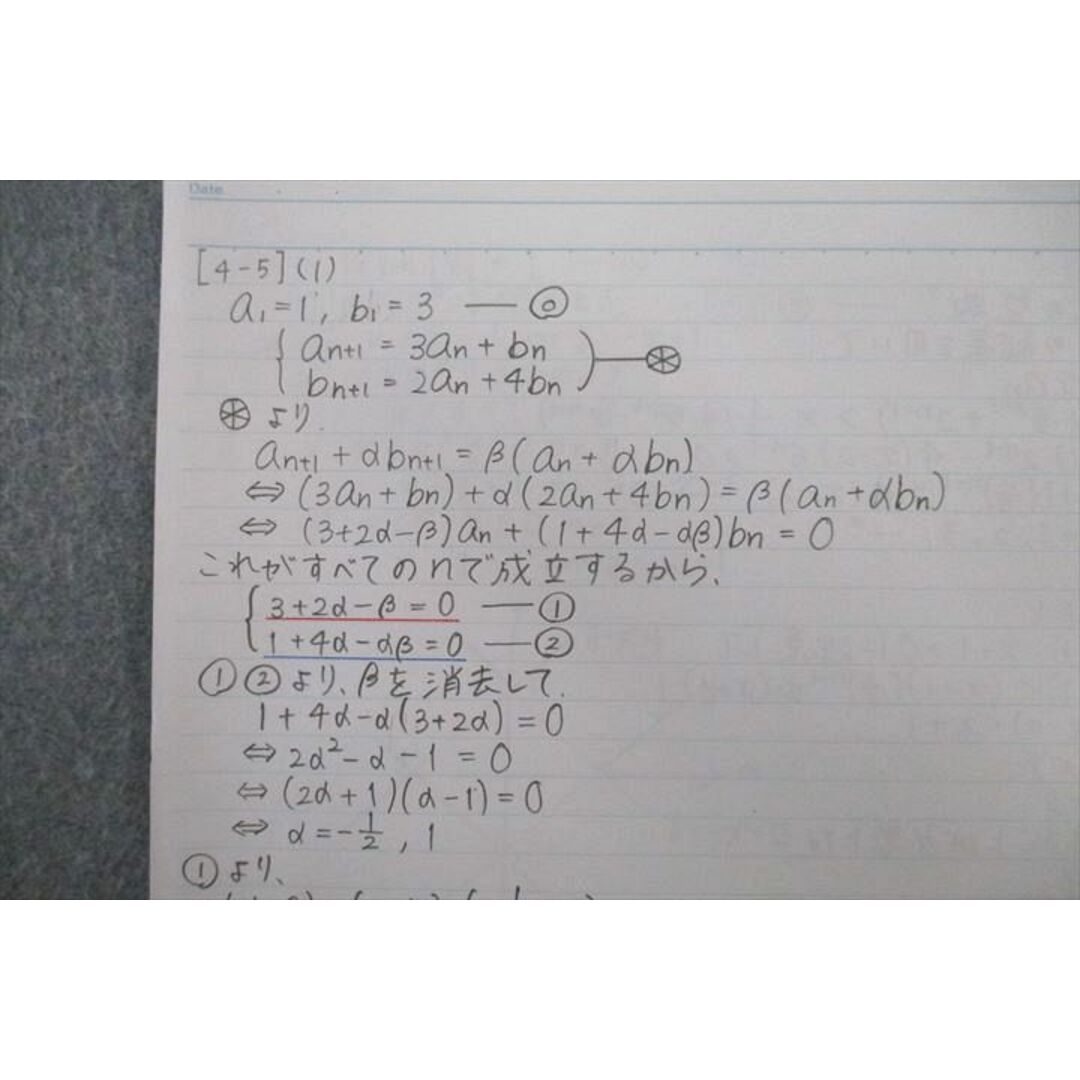 Date
[4-5](1)
a₁=1, b₁=3 ―⓪
{ aₙ₊₁ = 3aₙ + bₙ
bₙ₊₁ = 2aₙ + 4bₙ ) ―⊛
⊛ より
aₙ₊₁ + αbₙ₊₁ = β(aₙ + αbₙ)
⇔ (3aₙ + bₙ) + α(2aₙ + 4bₙ) = β(aₙ + αbₙ)
⇔ (3+2α-β)aₙ + (1+4α-αβ)bₙ = 0
これがすべてのnで成立するから、
{ 3+2α-β = 0 ―①
1+4α-αβ = 0 ―②
①②より、βを消去して、
1+4α-α(3+2α) = 0
⇔ 2α²-α-1 = 0
⇔ (2α+1)(α-1) = 0
⇔ α = -1/2, 1
①より、